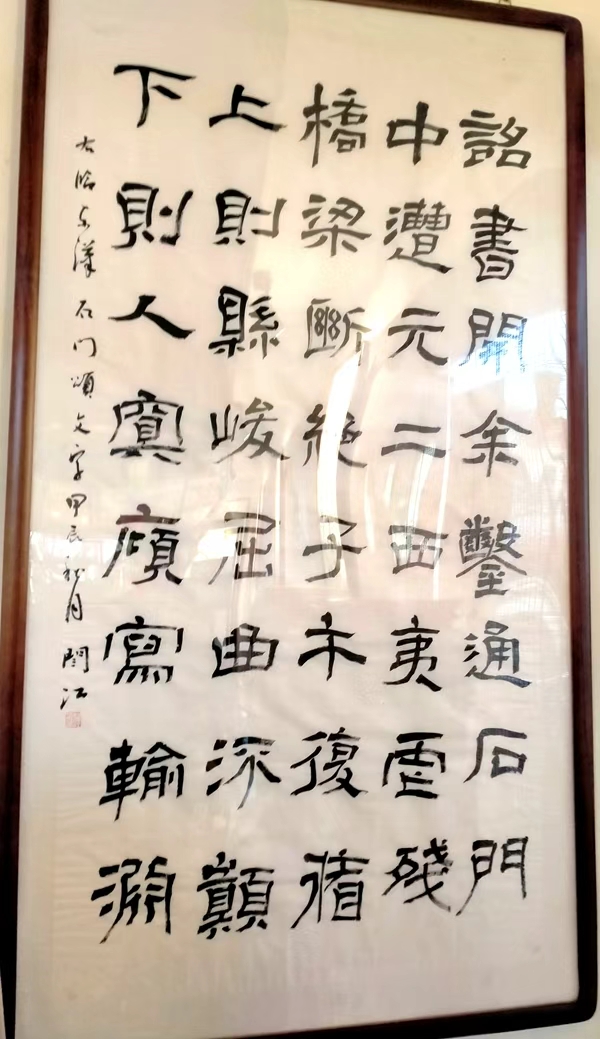 詔書開余鑿通石門
中遭元二西夷虐殘
橋梁斷絕子午復循
上則縣峻屈曲流顛
下則入冥傾寫輸淵
右臨东漢石门頌文字甲辰秋月